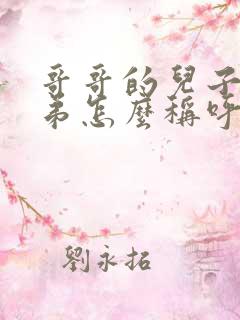 哥哥的兒子
弟怎麼稱呼
劉永招